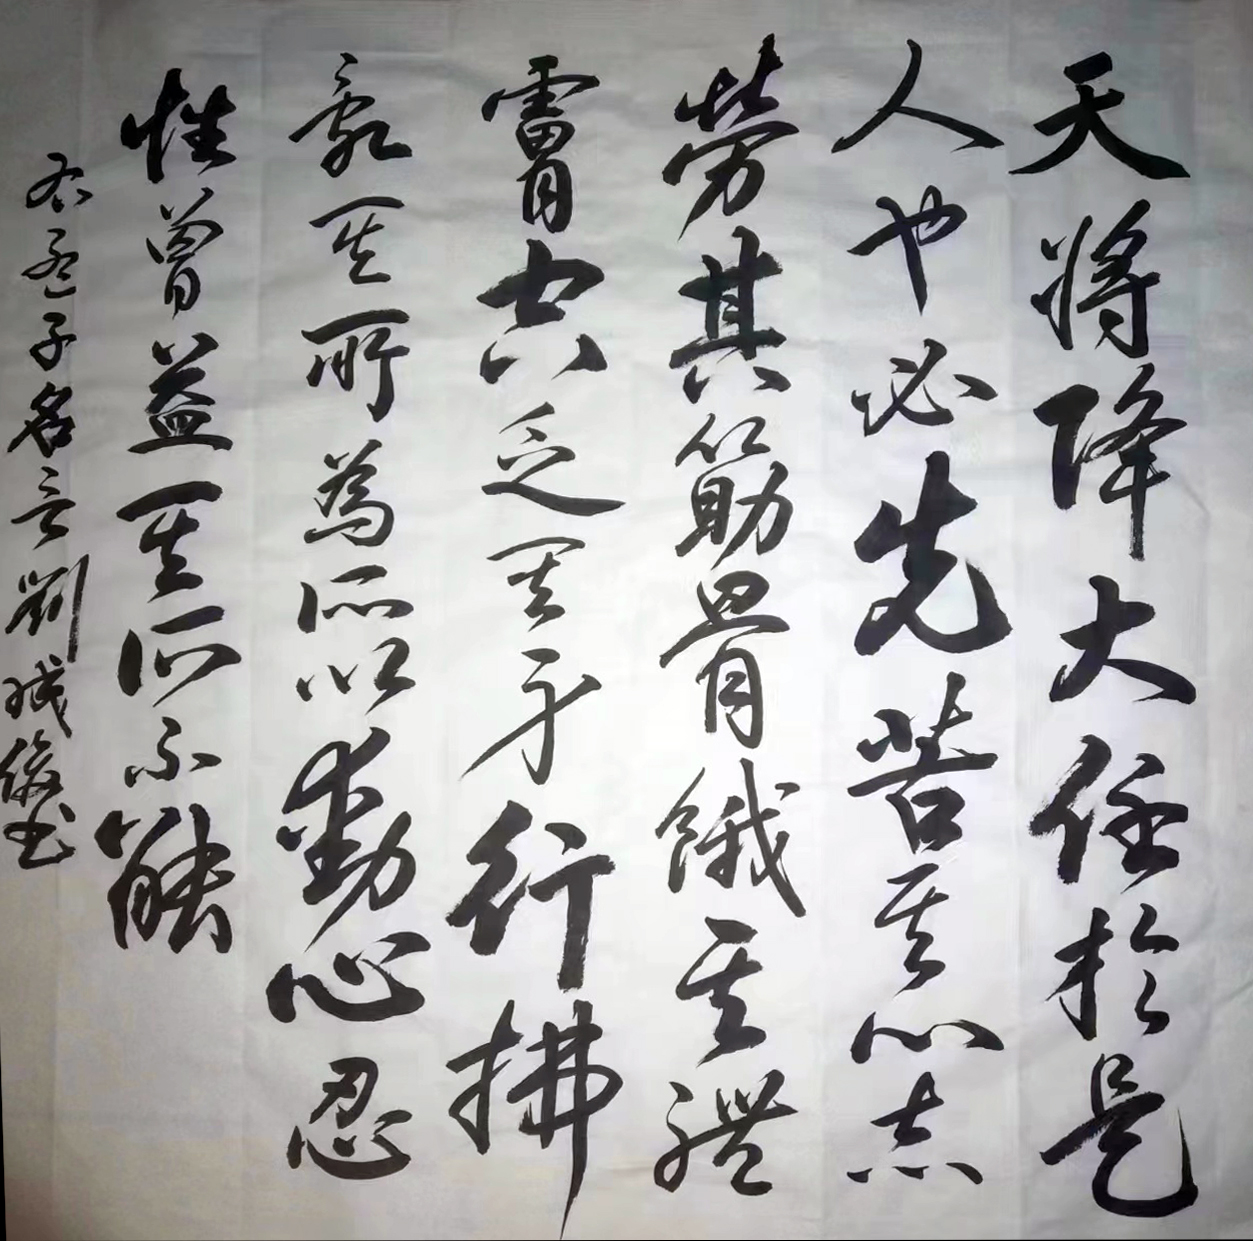 天将降大任於是
人也必先苦其心志
勞其筋骨餓其體
膚空乏其身行拂
亂其所為所以動心忍
性曾益其所不能
右孟子名言劉俊书